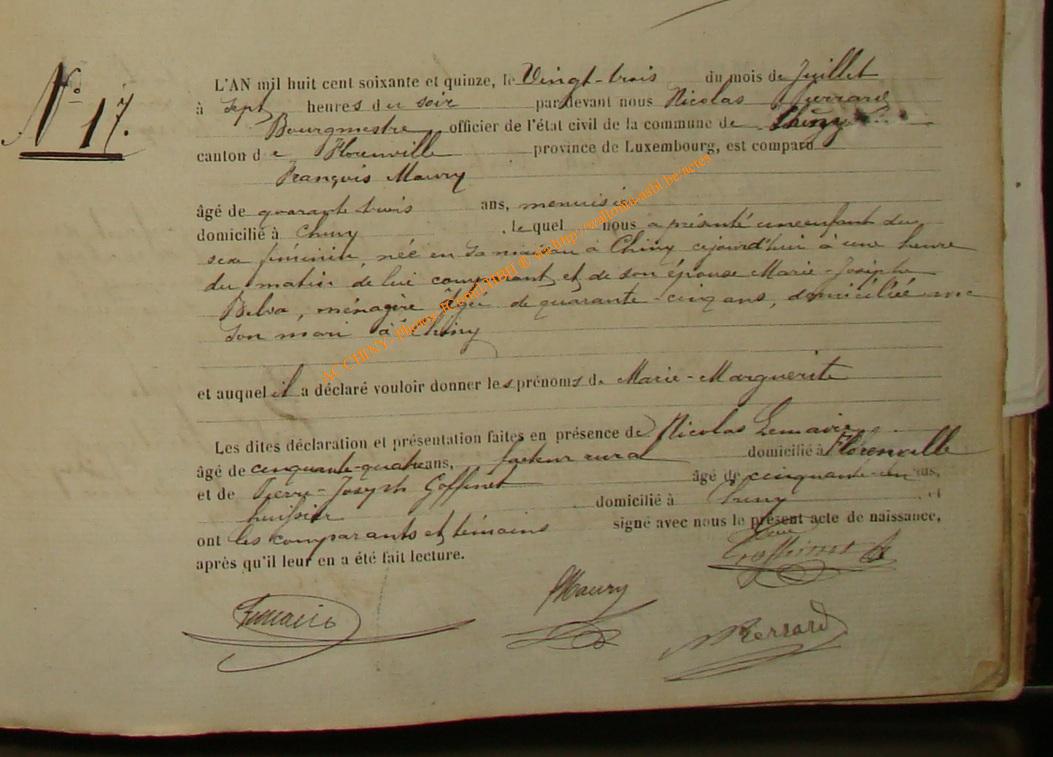 N° 17.
L'AN mil huit cent soixante et quinze, le Vingt-trois du mois de Juillet
à Sept heures du soir par devant nous Nicolas
Bourgmestre officier de l'état civil de la commune de Chiny
canton de Florenville province de Luxembourg, est comparu
François Maury
âgé de quarante trois ans, menuisier
domicilié à Chiny, lequel nous a présenté un enfant du
sexe féminin, née en sa maison à Chiny cejourd'hui à une heure
du matin de lui comparant et de son épouse Marie-Josèphe
ménagère âgée de quarante-cinq ans, domiciliée avec
son mari à Chiny
et auquel il a déclaré vouloir donner les prénoms de Marie-Marguerite
Les dites déclaration et présentation faites en présence de Nicolas Lemaire
âgé de cinquante-quatre ans, facteur rural domicilié à Florenville
et de Pierre-Joseph Goffinet âgé de cinquante-un ans,
huissier domicilié à Chiny et
ont les comparants et témoins signé avec nous le présent acte de naissance,
après qu'il leur en a été fait lecture.
Goffinet
Maury
Lemaire